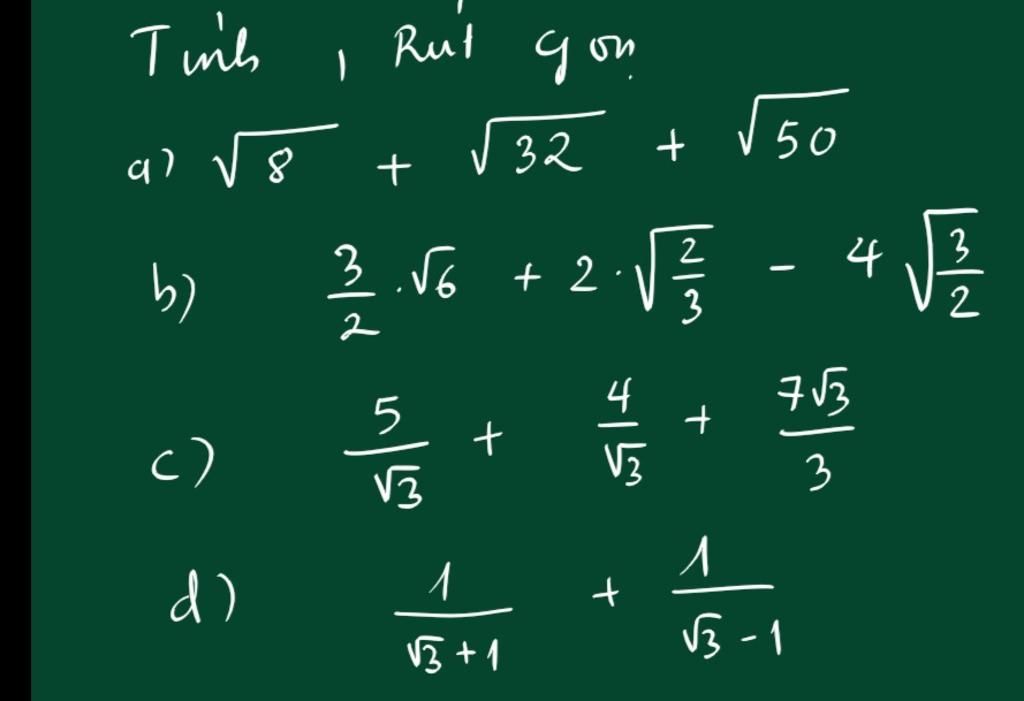 Tính, Rút gọn
a) √8 + √32 + √50
b) 3/2 . √6 + 2 . √(2/3) - 4 √(3/2)
c) 5/√3 + 4/√3 + 7√3/3
d) 1/(√3 + 1) + 1/(√3 - 1)